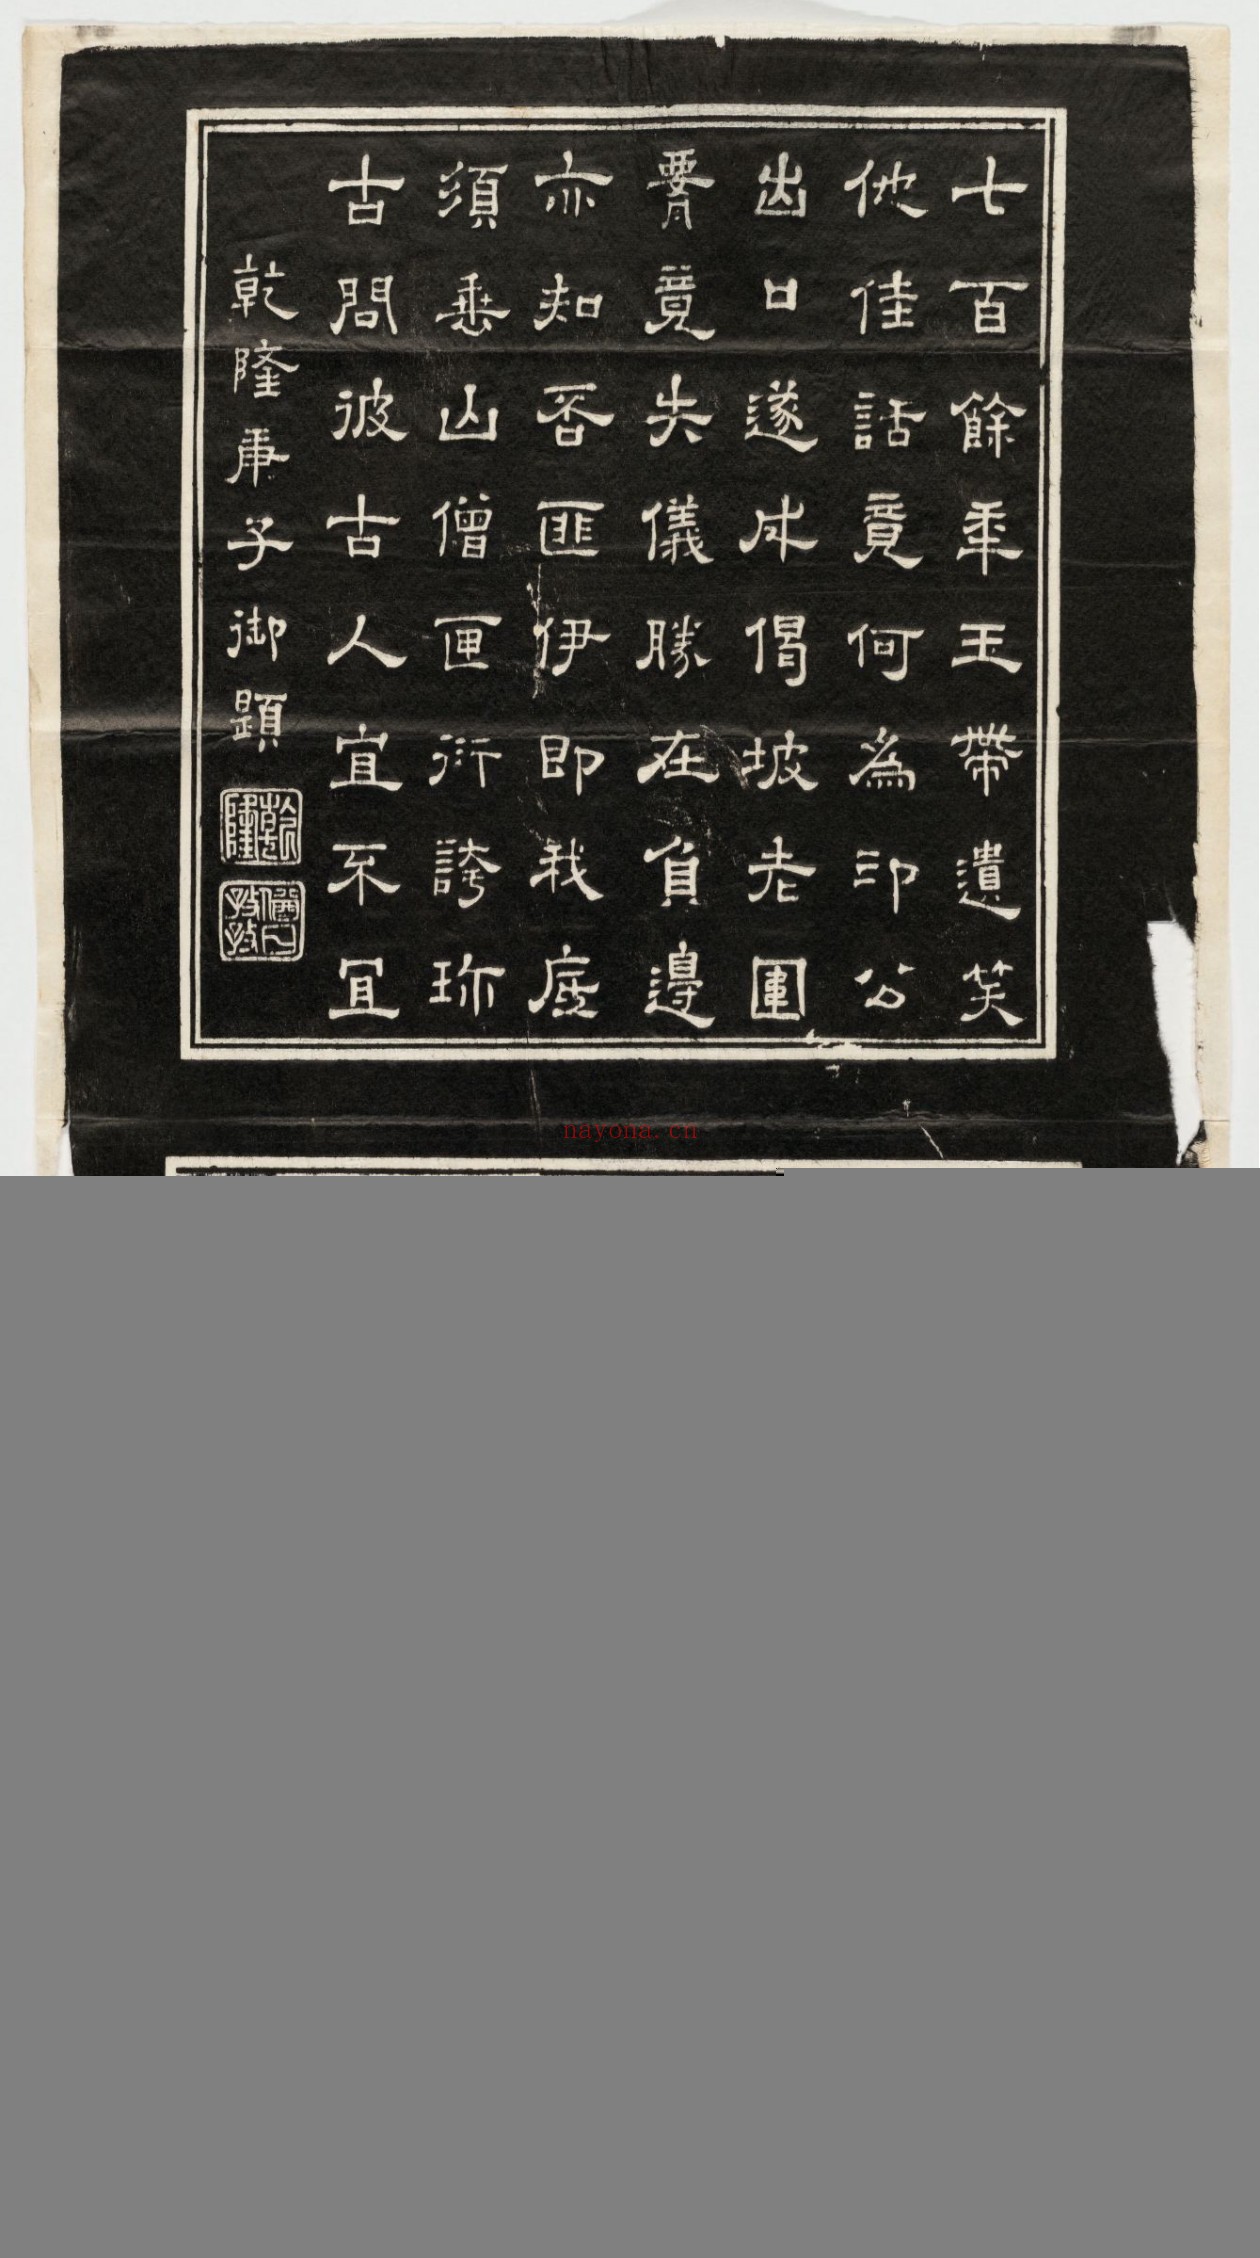 七百餘年玉帶遺笑
他佳話竟何為印公
出口遂成偈坡老圍
腰竟失儀勝在負邊
亦知否匪伊即我底
須垂山僧匣衍誇珎
古問彼古人宜不宜
乾隆庚子御題
乾隆
猶日孜孜
nayona.cn